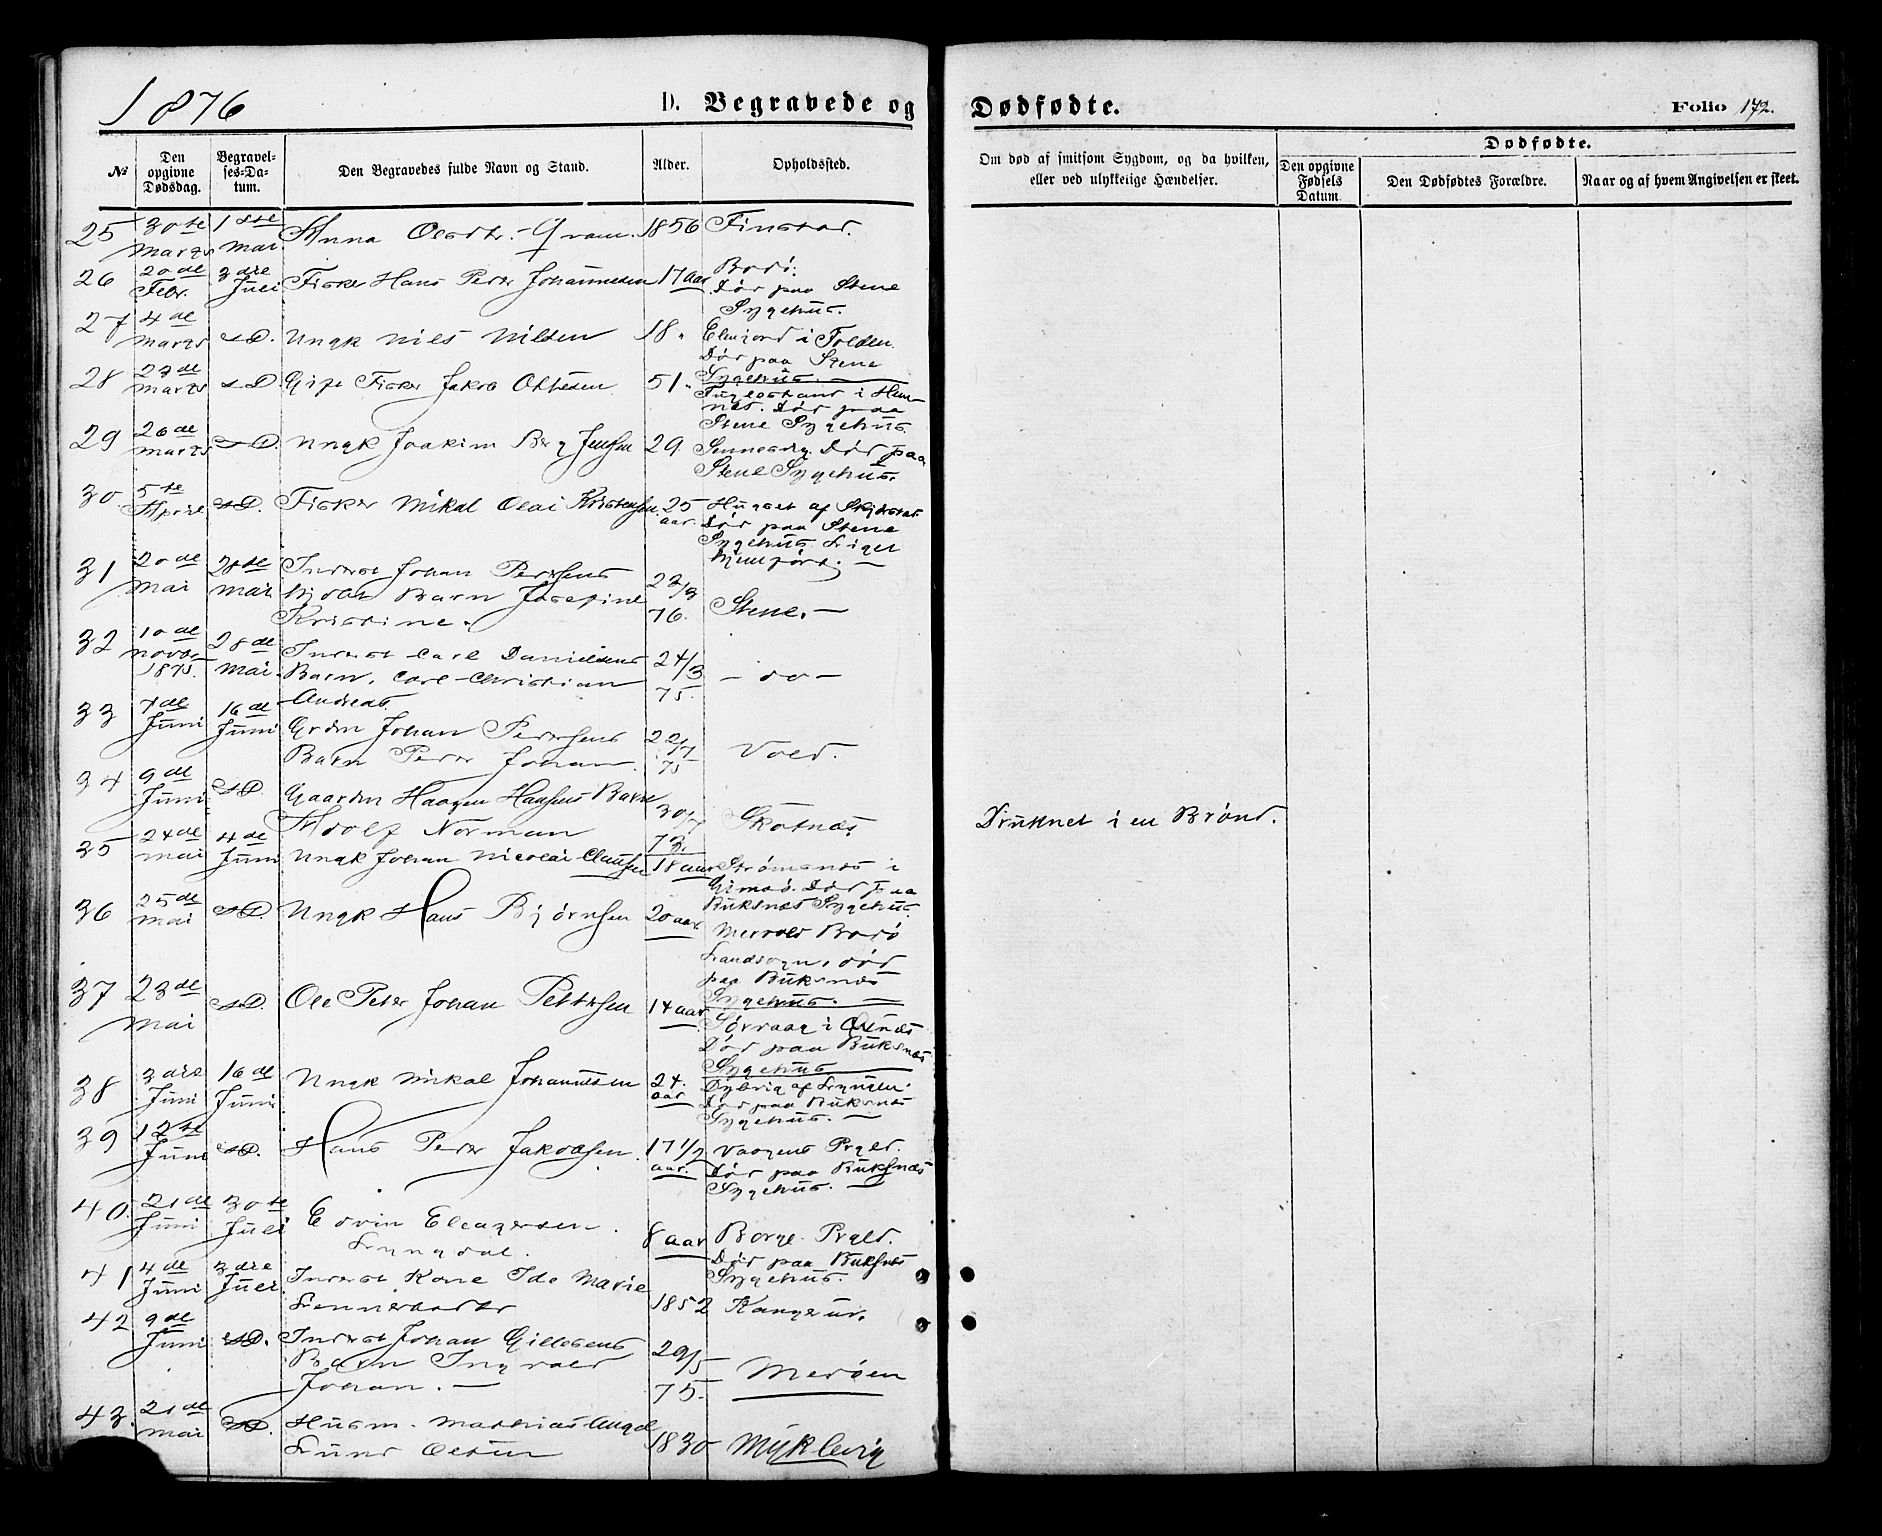 1876
D. Begravede og Dødfødte.
Folio 172.
No
Den opgivne Dødsdag.
Begravelses-Datum.
Den Begravedes fulde Navn og Stand.
Alder.
Opholdssted.
Om død af smitsom Sygdom, og da hvilken, eller ved ulykkelige Hændelser.
Dødfødte.
Den opgivne Fødsels Datum.
Den Dødfødtes Forældre.
Naar og af hvem Angivelsen er skeet.
25 30te Marts 1ste Mai Anna Olsdtr. Gram. 1856 Finstad.
26 20de Febr. 2dre Juli Fisker Hans Peder Johannesen 17 aar Bodö. Död paa Stene Sygehus.
27 4de Marts s.D. Ungk Nils Nilsen 18. i Folden. Död paa Stene Sygehus.
28 23de Marts s.D. Gift Fisker Jakob Ottesen 51. Fuglestrand i Hemnæs. Död paa Stene Sygehus.
29 26de Marts s.D. Ungk Joakim Berg Jensen 29. Sennesvig. Död paa Stene Sygehus.
30. 5te April s.D. Fisker Mikal Olai Kristensen. 25 aar. af Död paa Stene Sygehus. Liget hjemført.
31 20de Mai 28de Mai Inderst Johan Pedersens Barn Josefine Kristine. 22/3 76. Stene.
32 10de Novbr 1875. 28de Mai Inderst Carl Danielsens Barn. Carl Christian Andreas. 24/3 75. do
33 7de Juni 16de Juni Grdm Johan Pedersens Barn Peder Johan. 22/7 75 Vold.
34 9de Juni s.D. Gaardm Haagen Hansens Barn Adolf Norman 30/7 73. Skotnæs Druknet i en Brønd.
35 24de Mai 4de Juni Ungk Johan Nicolai Clausen 18 aar Strömsnæs i Gimsö. Död paa Buksnæs Sygehus.
36 25de Mai s.D. Ungk Hans Bjørnsen 20 aar. Bodö Landsogn, död paa Buksnæs Sygehus.
37 23de Mai s.D. Ole Peter Johan Pettersen 14 aar Sörvaag i Öxnæs Död paa Buksnæs Sygehus
38 3die Juni 16de Juni Ungk Mikal Johannesen 24. aar Dybvig af Lyngen. Död paa Buksnæs Sygehus.
39 12te Juni s.D. Hans Peder Jakobsen. 17 1/2 aar. Vaagens Prgld. Död paa Buksnæs Sygehus.
40. 21de Juni 30te Juli Edvin Eleazersen. Lyngdal. 8 aar Borge Prgld. Död paa Buksnæs Sygehus.
41 4de Juni 2dre Juli. Inderst Kone Ida Marie Lennertsdtr 1852 Kangerur.
42 9de Juni s.D. Inderst Johan Gillesens Barn Ingvald Johan. 29/5 75. Meröen
43. 21de Mai s.D. Husm. Mathias Angel Lund Olsen 1830 Myklevig